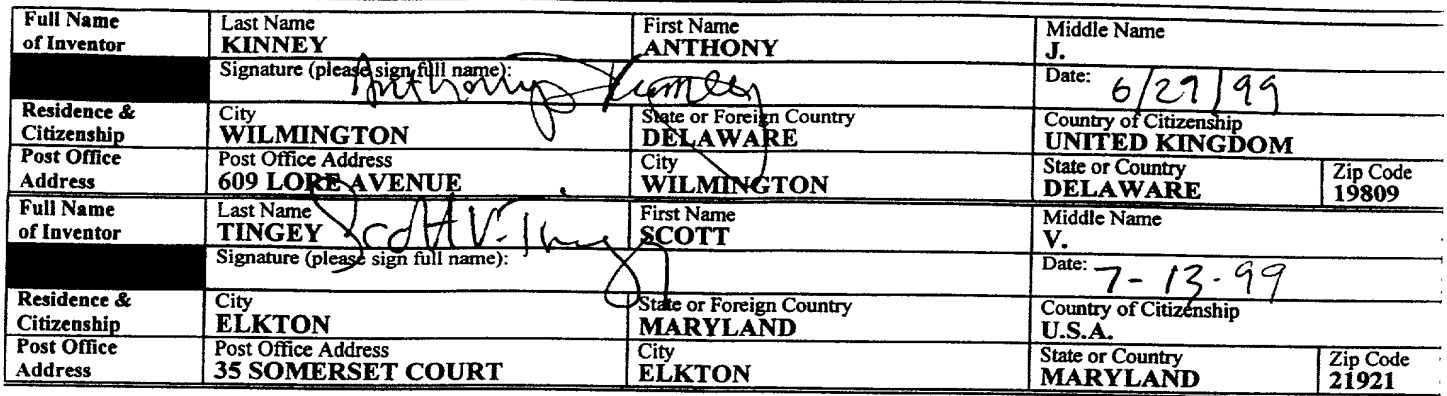 Full Name of Inventor Last Name KINNEY First Name ANTHONY Middle Name J.
Signature (please sign full name): Anthony J. Kinney Date: 6/29/99
Residence & Citizenship City WILMINGTON State or Foreign Country DELAWARE Country of Citizenship UNITED KINGDOM
Post Office Address Post Office Address 609 LORE AVENUE City WILMINGTON State or Country DELAWARE Zip Code 19809
Full Name of Inventor Last Name TINGEY First Name SCOTT Middle Name V.
Signature (please sign full name): Scott V. Tingey Date: 7-13-99
Residence & Citizenship City ELKTON State or Foreign Country MARYLAND Country of Citizenship U.S.A.
Post Office Address Post Office Address 35 SOMERSET COURT City ELKTON State or Country MARYLAND Zip Code 21921